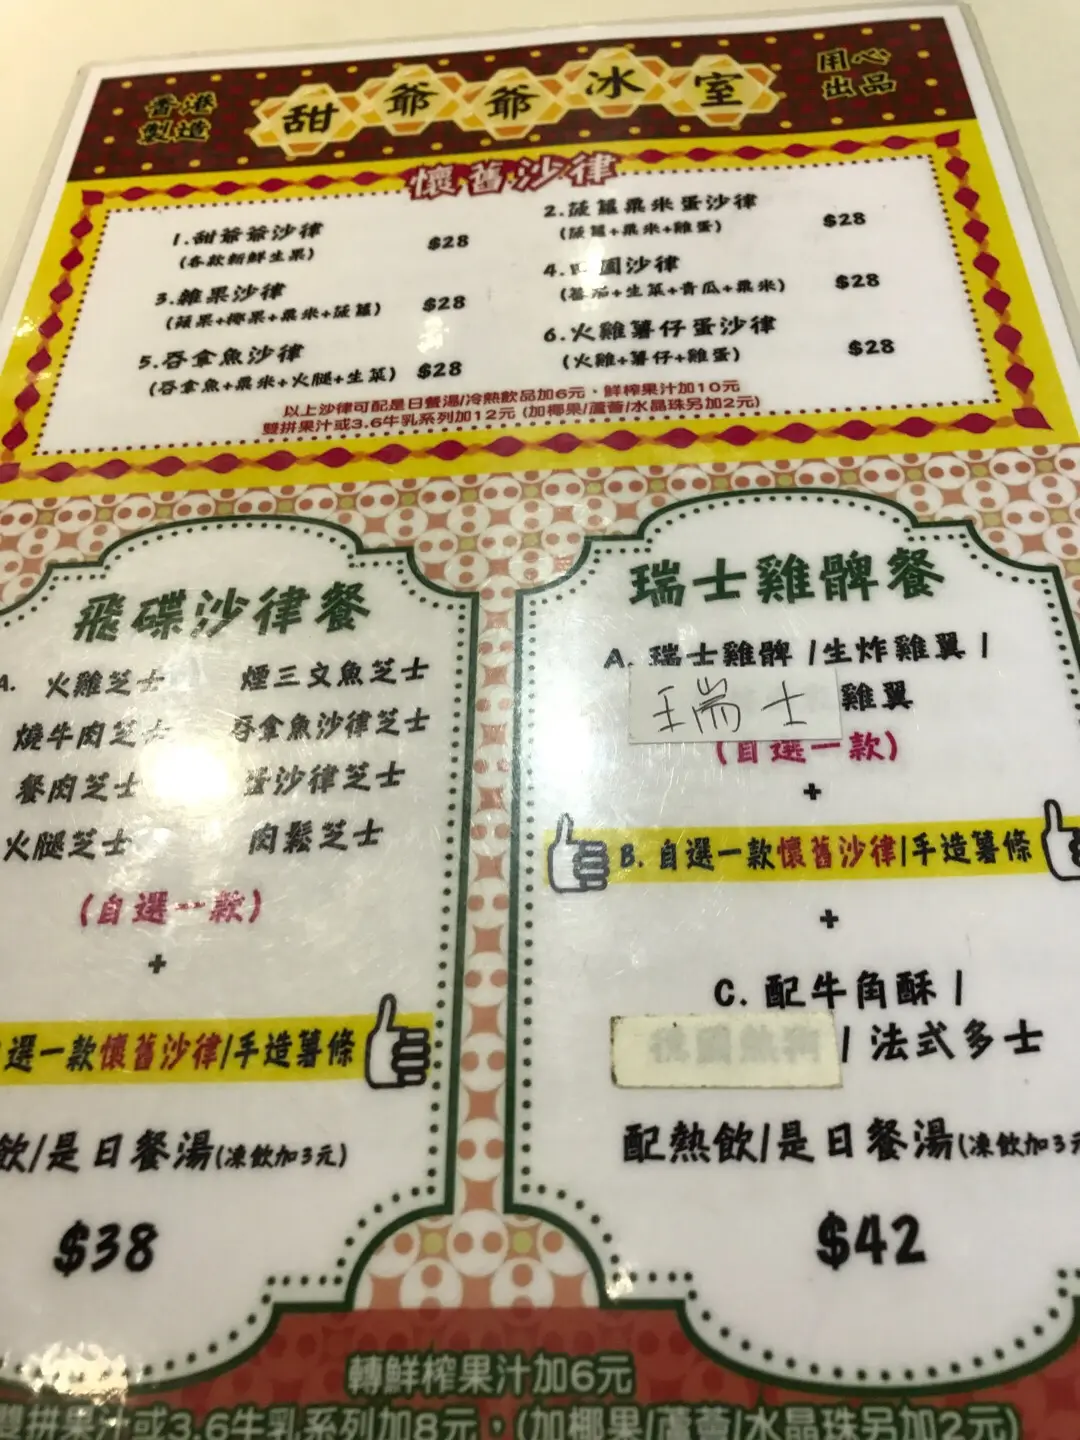 香港製造
甜爺爺冰室
用心出品
懷舊沙律
1.甜爺爺沙律 $28
(各款新鮮生果)
2.菠蘿粟米蛋沙律 $28
(菠蘿+粟米+雞蛋)
3.雜果沙律 $28
(蘋果+椰果+粟米+菠蘿)
4. 圓沙律 $28
(蕃茄+生菜+青瓜+粟米)
5.吞拿魚沙律 $28
(吞拿魚+粟米+火腿+生菜)
6.火雞薯仔蛋沙律 $28
(火雞+薯仔+雞蛋)
以上沙律可配是日餐湯/冷熱飲品加6元、鮮榨果汁加10元
雙拼果汁或3.6牛乳系列加12元 (加椰果/蘆薈/水晶珠另加2元)
飛碟沙律餐
A. 火雞芝士 煙三文魚芝士
燒牛肉芝士 吞拿魚沙律芝士
餐肉芝士 蛋沙律芝士
火腿芝士 肉鬆芝士
(自選一款)
+
選一款懷舊沙律/手造薯條
飲/是日餐湯(凍飲加3元)
$38
瑞士雞髀餐
A. 瑞士雞髀 /生炸雞翼 /
瑞士雞翼
(自選一款)
+
B. 自選一款懷舊沙律/手造薯條
+
C. 配牛角酥 /
/ 法式多士
配熱飲/是日餐湯(凍飲加3元
$42
轉鮮榨果汁加6元
雙拼果汁或3.6牛乳系列加8元，(加椰果/蘆薈/水晶珠另加2元)